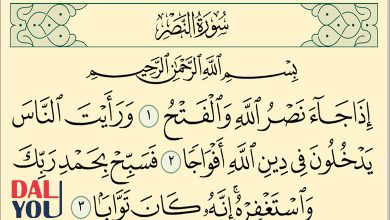 سُورَةُ النَّصْرِ
بِسْمِ اللَّهِ الرَّحْمَٰنِ الرَّحِيمِ
إِذَا جَآءَ نَصْرُ اللَّهِ وَالْفَتْحُ ١ وَرَأَيْتَ النَّاسَ
يَدْخُلُونَ فِي دِينِ اللَّهِ أَفْوَاجًا ٢ فَسَبِّحْ بِحَمْدِ رَبِّكَ
وَاسْتَغْفِرْهُ ۚ إِنَّهُۥ كَانَ تَوَّابًۢا ٣
DAL
YOU